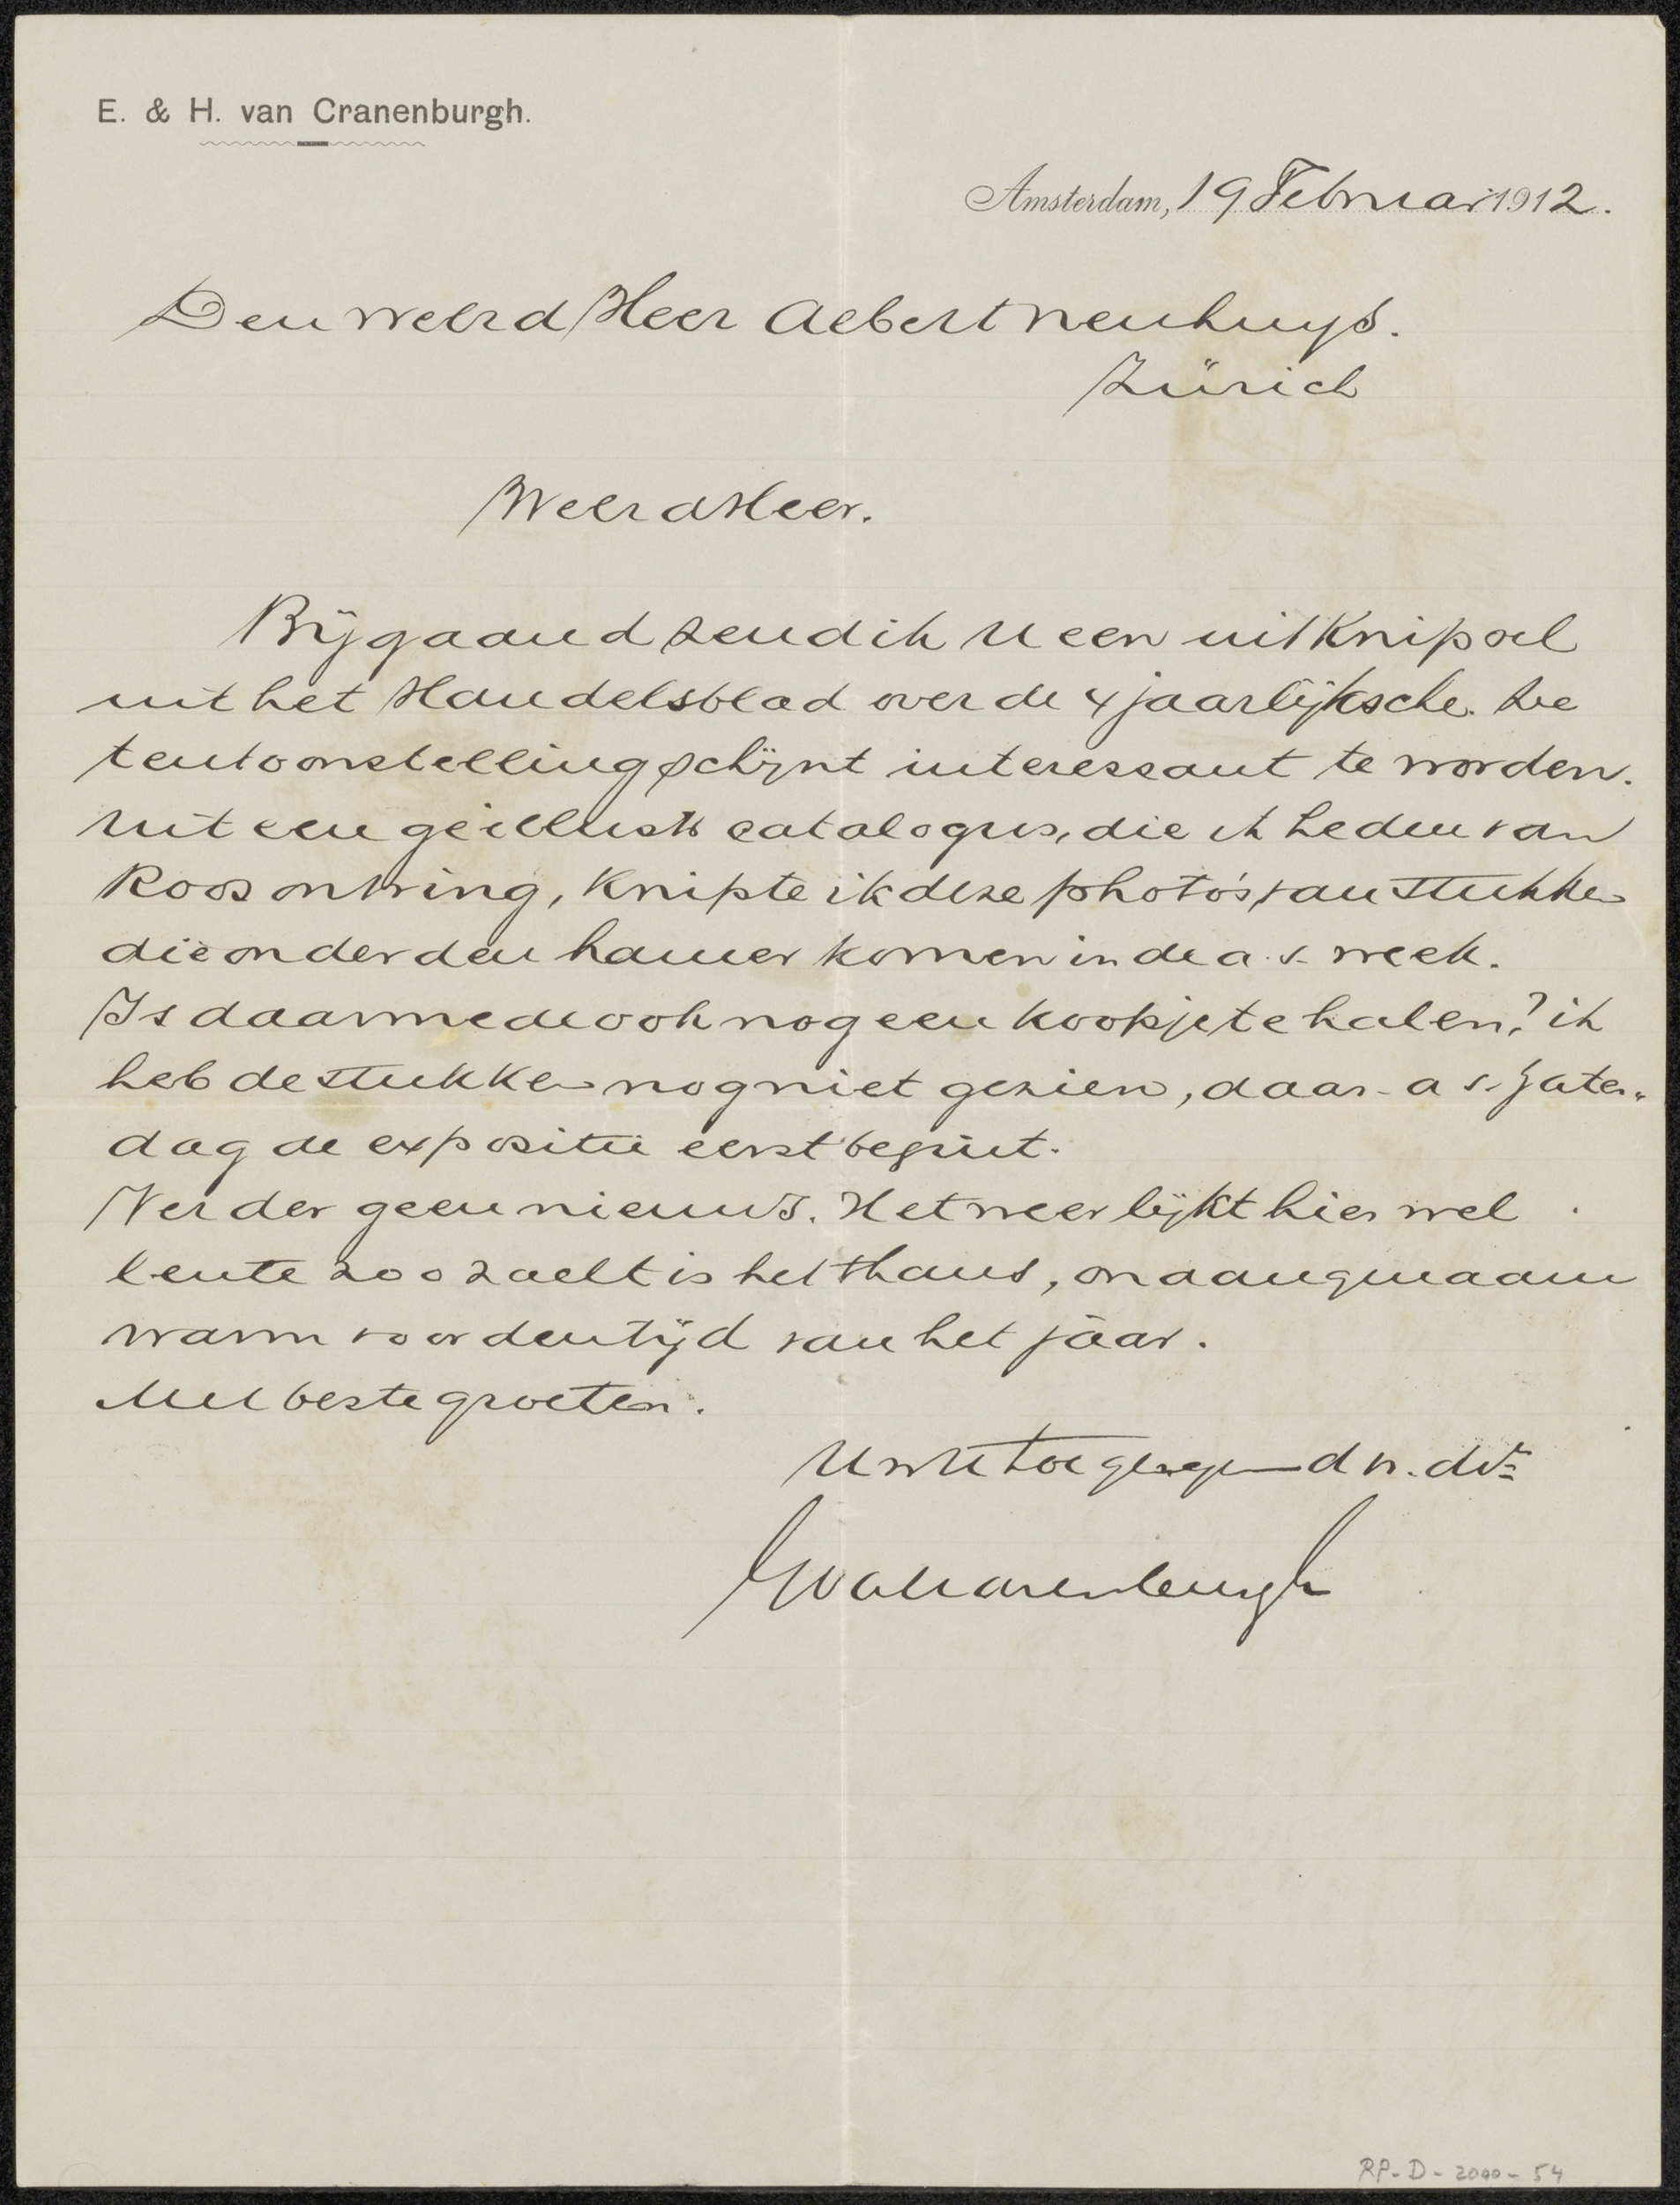 E. & H. van Cranenburgh.
Amsterdam, 19 Februari 1912.
Den Weerd Heer Albert Neuhuys.
Zürich
Weerd Heer.
Bijgaand zend ik U een uitknipsel
uit het Handelsblad over de 4 jaarlijksche. De
tentoonstelling schijnt interessant te worden.
Uit een geillustr catalogus, die ik heden van
Roos ontving, knipte ik deze photo's van stukken
die onder den hamer komen in de a.s. week.
Is daarmede ook nog een koopje te halen? ik
heb de stukken nog niet gezien, daar a s. Zater-
dag de expositie eerst begint.
Verder geen nieuws. Het weer lijkt hier wel
lente zoo zoelt is het thans, onaangenaam
warm voor den tijd van het jaar.
Met beste groeten.
Uw U toegenegend v. dr
EvanCranenburgh
RP-D-2000-54